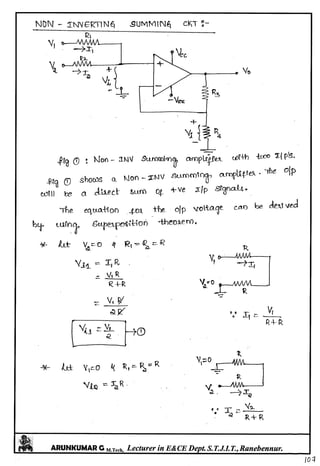 NON - INVERTING SUMMING CKT :-
R1
V1
→I1
R2
V2
→I2
+
Vi
-
+
-
+Vcc
-VEE
Vo
R3
+
V1
-
R4
fig ① : Non - INV Summing amplifier with two I/ps.
fig ① shows a Non - INV summing amplifier. The o/p
will be a direct sum of +ve I/p signals.
The equation for the o/p voltage can be derived
by using Superposition theorem.
* Let V2=0 & R1=R2=R
Vi1 = I1R
= V1R
R+R
= V1R
2R
Vi1 = V1
2
→①
R
V1
→I1
V2=0
R
∵ I1 = V1
R+R
* Let V1=0 & R1=R2=R
Vi2 = I2R.
R
V1=0
R
V2
→I2
∵ I2 = V2
R+R
ARUNKUMAR G M.Tech, Lecturer in E&CE Dept. S.T.J.I.T., Ranebennur.
107